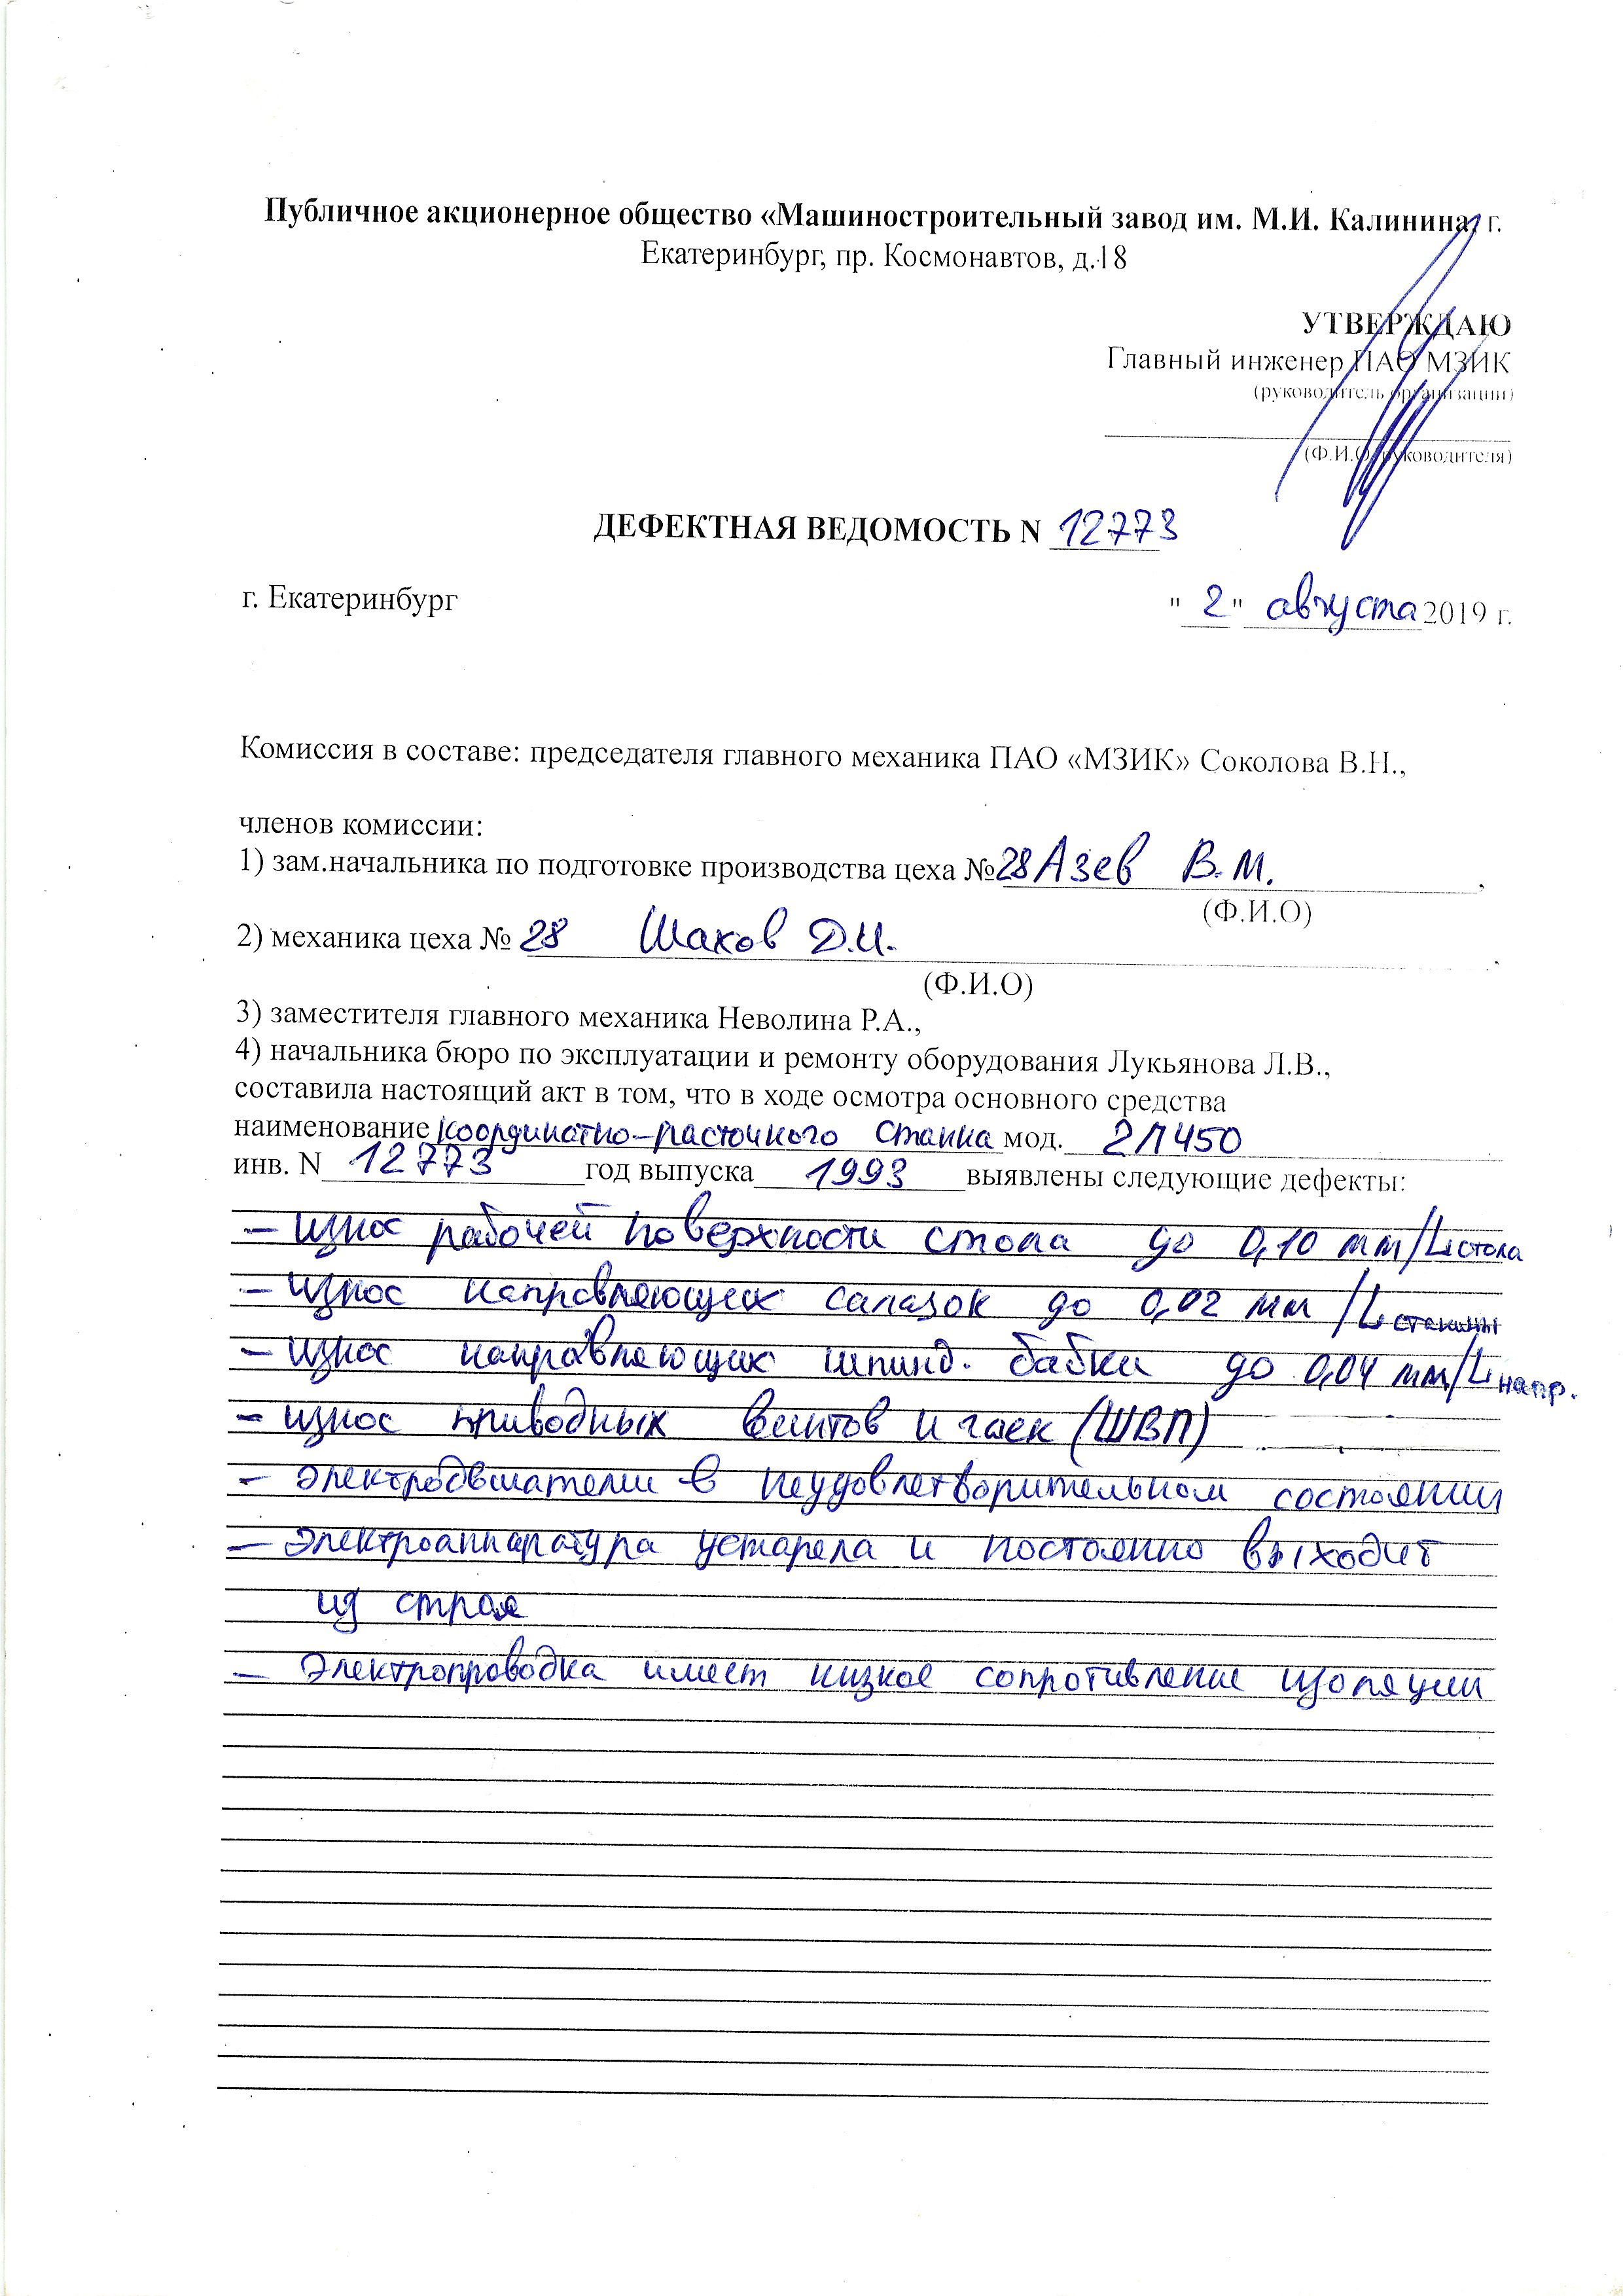 Публичное акционерное общество «Машиностроительный завод им. М.И. Калинина, г.
Екатеринбург, пр. Космонавтов, д.18
УТВЕРЖДАЮ
Главный инженер ПАО МЗИК
(руководитель организации)
(Ф.И.О. руководителя)
ДЕФЕКТНАЯ ВЕДОМОСТЬ N 12773
г. Екатеринбург " 2 " августа 2019 г.
Комиссия в составе: председателя главного механика ПАО «МЗИК» Соколова В.Н.,
членов комиссии:
1) зам.начальника по подготовке производства цеха №28 Азев В.М. ,
(Ф.И.О)
2) механика цеха № 28 Шахов Д.И. .
(Ф.И.О)
3) заместителя главного механика Неволина Р.А.,
4) начальника бюро по эксплуатации и ремонту оборудования Лукьянова Л.В.,
составила настоящий акт в том, что в ходе осмотра основного средства
наименование координатно-расточного станка мод. 2Л450
инв. N 12773 год выпуска 1993 выявлены следующие дефекты:
– износ рабочей поверхности стола до 0,10 мм/L стола
– износ направляющих салазок до 0,02 мм /L станины
– износ направляющих шпинд. бабки до 0,04 мм/L напр.
– износ приводных винтов и гаек (ШВП)
– электродвигатели в неудовлетворительном состоянии
– электроаппаратура устарела и постоянно выходит
из строя
– электропроводка имеет низкое сопротивление изоляции